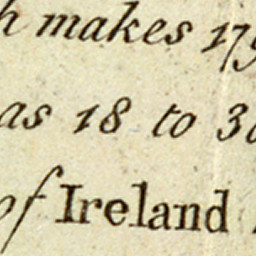 makes 179
as 18 to 30
of Ireland